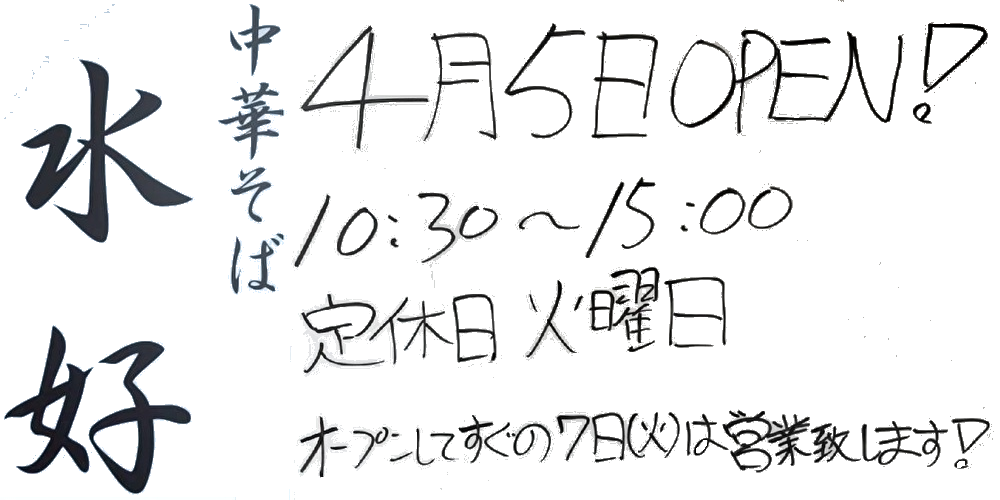 水好
中華そば
4月5日OPEN!
10:30～15:00
定休日 火曜日
オープンしてすぐの7日(火)は営業致します!